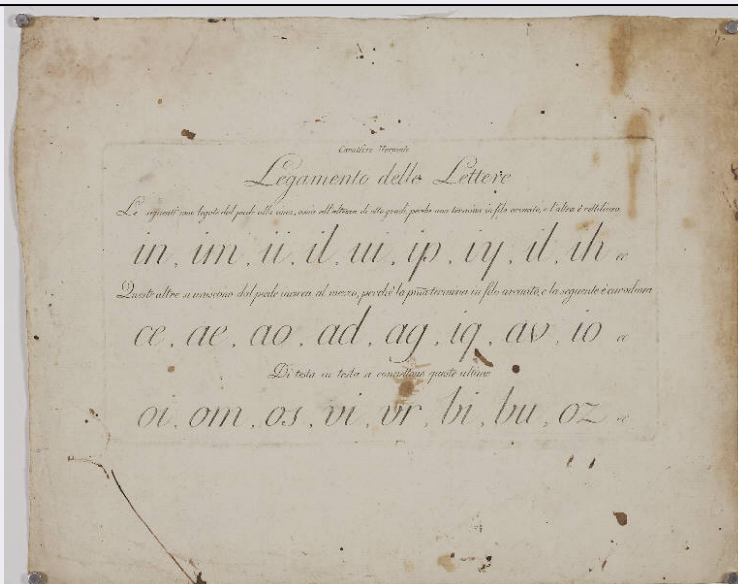 Carattere Normale
Legamento delle Lettere
Le seguenti sono legate dal piede alla cima, ossia all'altezza di otto gradi, perchè una termina in filo arcuato, e l'altra è rettilinea
in, im, ii, il, ui, ip, iy, il, ih ec
Queste altre si uniscono dal piede incirca al mezzo, perchè la prima termina in filo arcuato, e la seguente è curvilinea
ce, ae, ao, ad, ag, iq, av, io ec
Di testa in testa si connettono queste ultime
oi, om, os, vi, vr, bi, bu, oz ec